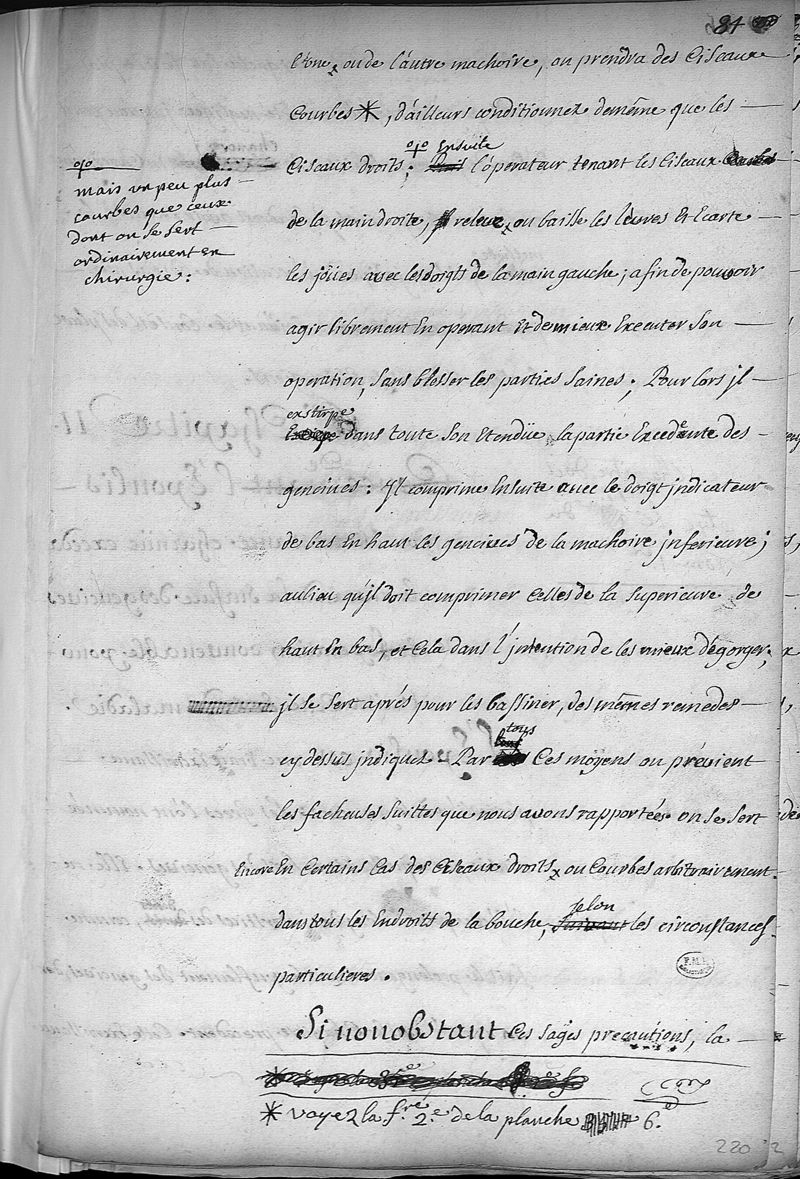 84
l'une, ou de l'autre machoire, on prendra des Ciseaux
Courbes *, d'ailleurs conditionnez demême que les
Ciseaux droits; Ensuite l'operateur tenant les Ciseaux Courbes
o|o
mais un peu plus
courbes que ceux
dont on se sert
ordinairement en
chirurgie:
de la main droite, releve, ou baisse les levres Et Ecarte
les joües avec les doigts de la main gauche; afin de pouvoir
agir librement En operant Et de mieux Executer Son
operation, Sans blesser les parties Saines; Pour lors jl
exstirpe
dans toute Son Etendüe la partie Excedente des
gencives: Jl comprime Ensuite avec le doigt jndicateur
de bas En haut les gencives de la machoire jnferieure;
aulieu qu'jl doit comprimer Celles de la Superieure de
haut En bas, et Cela dans l'jntention de les mieux dégorger,
jl se Sert aprés pour les bassiner, des mêmes remedes
cy dessus jndiquez. Par tous Ces moyens on prévient
les facheuses Suittes que nous avons rapportées on se Sert
Encore En Certains Cas des Ciseaux droits, ou Courbes arbitrairement
dans tous les Endroits de la bouche, selon Suivant les circonstances
particulieres.
Si nonobstant Ces sages precautions, la
* voyez la f.re 2.e de la planche 6.e
220
2